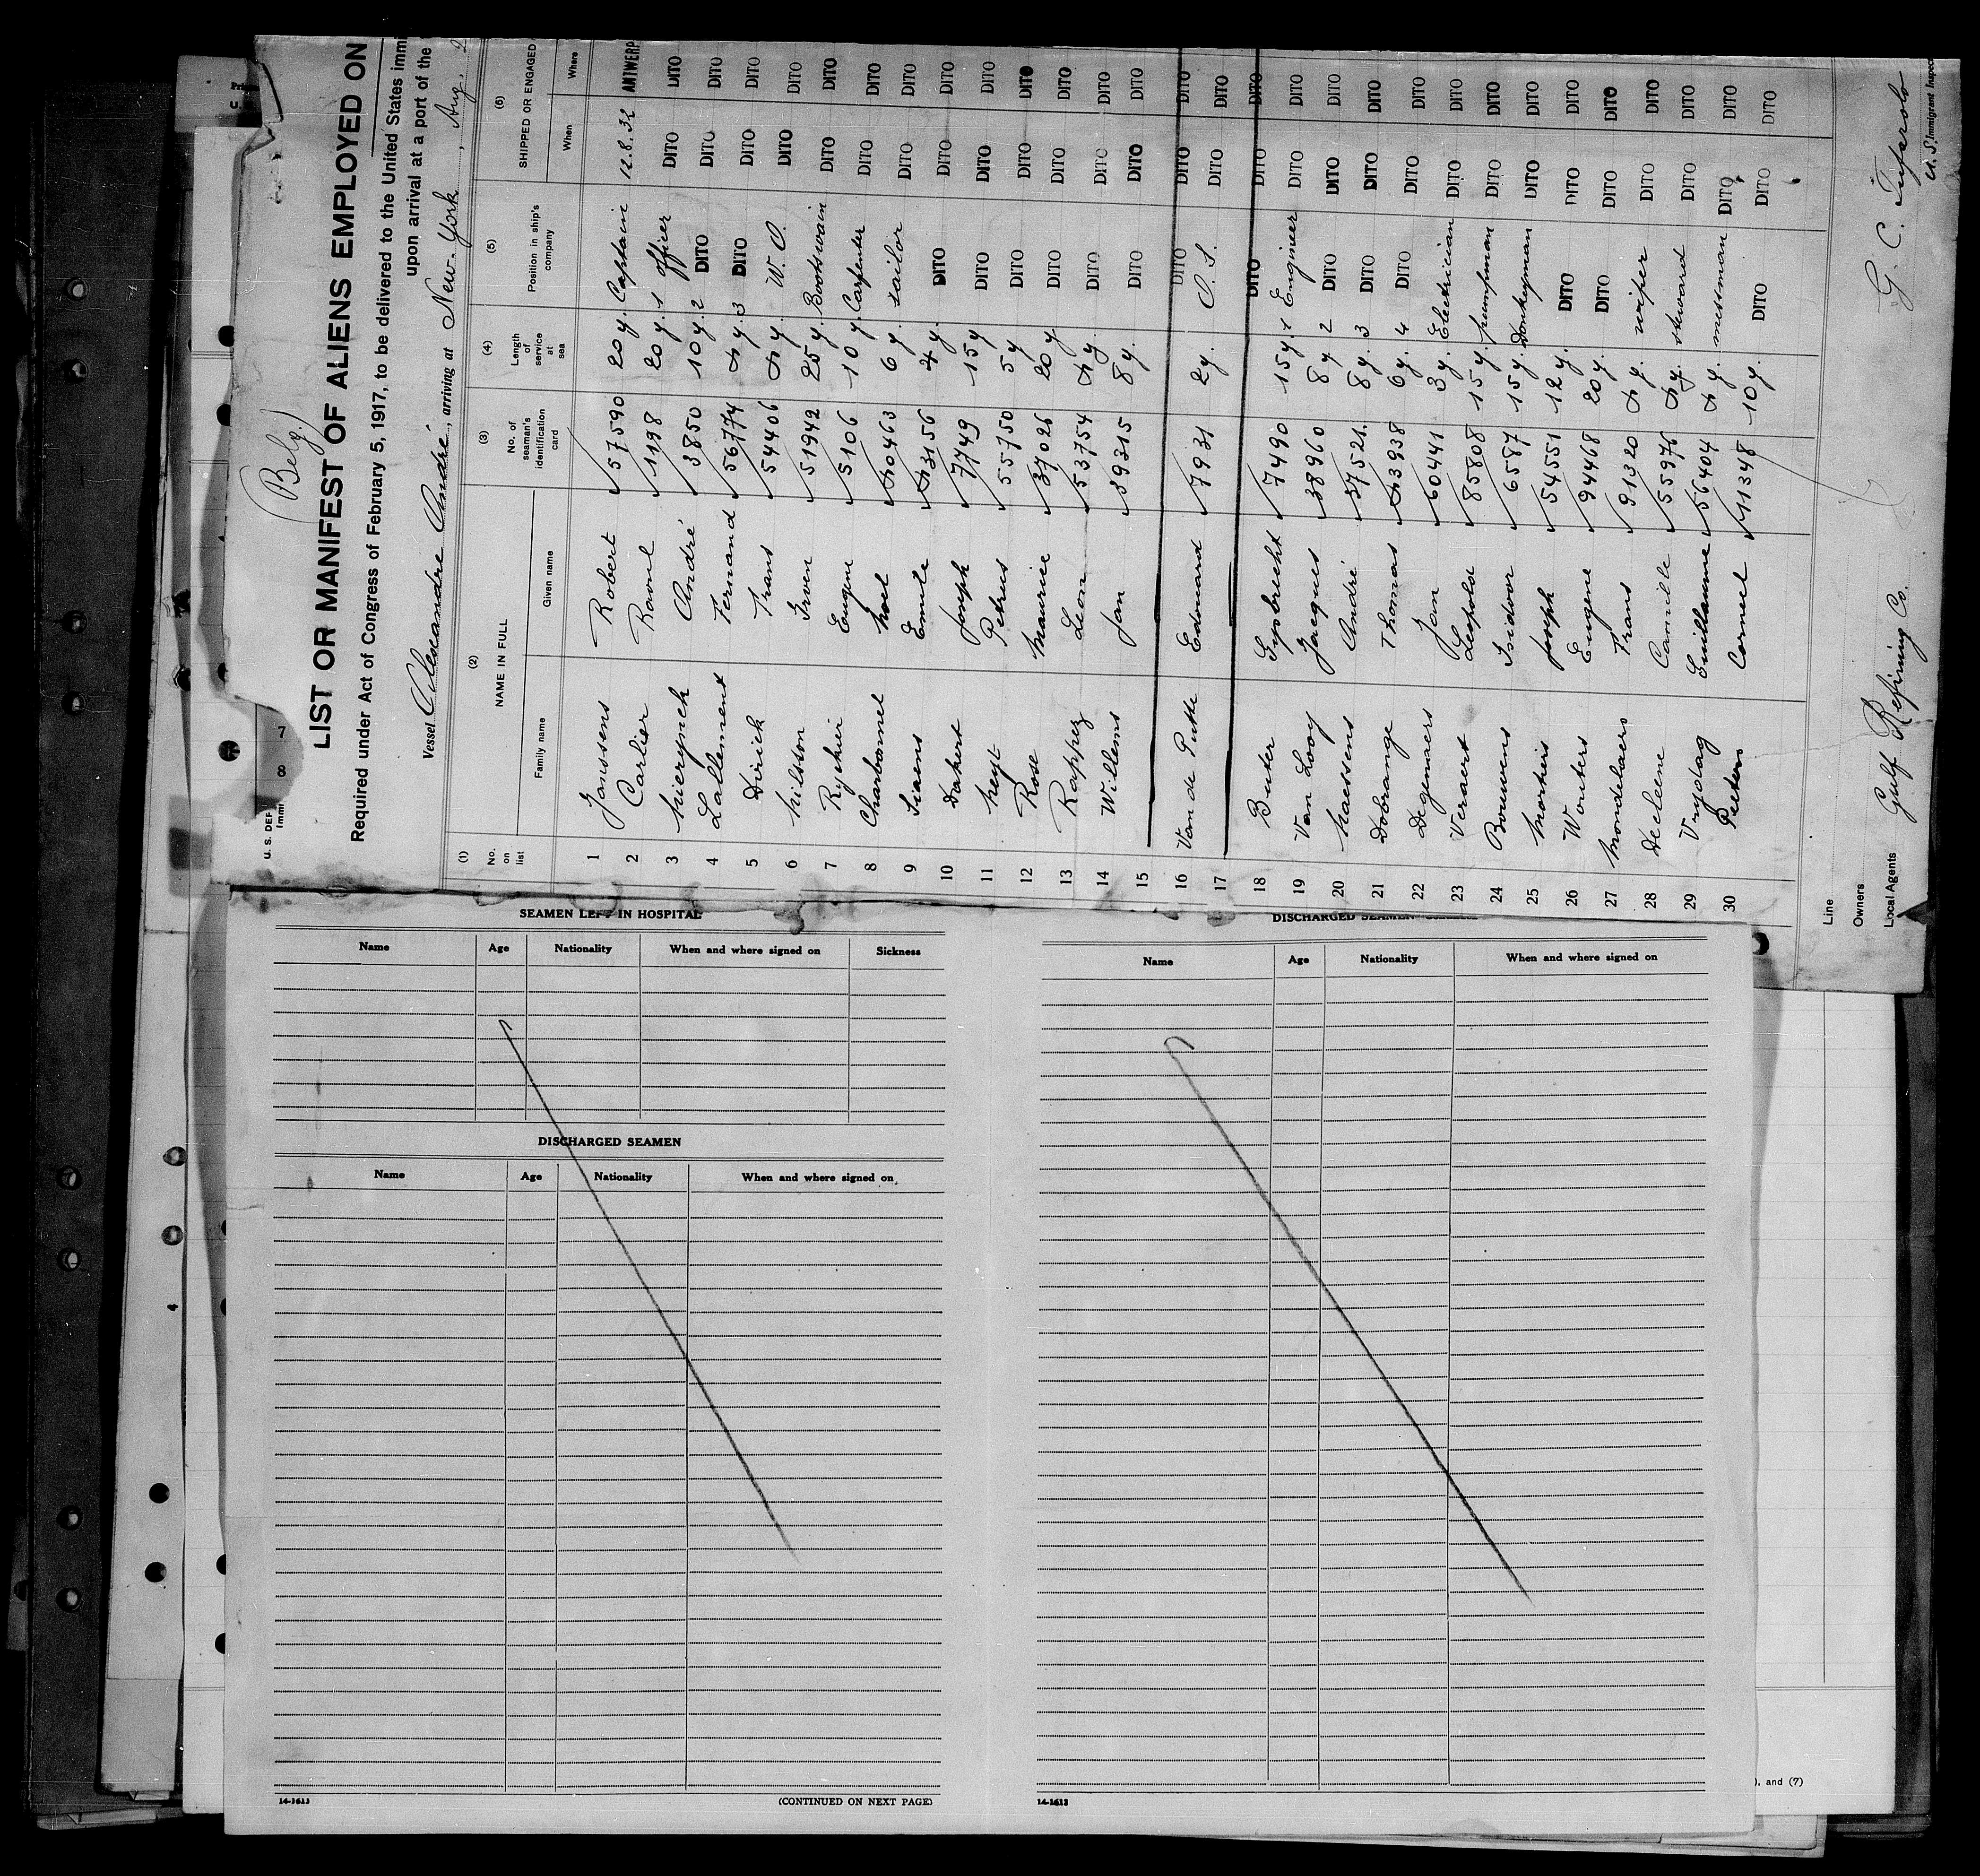 (Belg.)
LIST OR MANIFEST OF ALIENS EMPLOYED ON
Required under Act of Congress of February 5, 1917, to be delivered to the United States immi
upon arrival at a port of the
Vessel Alexandre André, arriving at New-York, Aug. 2
(1) No. on list (2) NAME IN FULL Family name Given name (3) No. of seaman's identification card (4) Length of service at sea (5) Position in ship's company (6) SHIPPED OR ENGAGED When Where
1 Janssens Robert 57590 20 y. Captain 12.8.32 ANTWERP
2 Carlier Raoul 1198 20 y. 1 officer DITO DITO
3 Mierynck André 3850 10 y. 2 DITO DITO DITO
4 Lallement Fernand 56774 4 y. 3 DITO DITO DITO
5 Dirick Frans 54406 4 y. W. O. DITO DITO
6 Nilsson Irven 51942 25 y. Bootswain DITO DITO
7 Ryckier Eugene 5106 10 y. Carpenter DITO DITO
8 Charbonnel Noel 40463 6 y. sailor DITO DITO
9 Siaens Emile 43156 4 y. DITO DITO DITO
10 Dakert Joseph 7749 15 y DITO DITO DITO
11 Neyt Petrus 55750 5 y DITO DITO DITO
12 Rose Maurice 37026 20 y DITO DITO DITO
13 Rappez Leon 53754 4 y. DITO DITO DITO
14 Willems Jan 39315 8 y. DITO DITO DITO
15
16 Van de Putte Edouard 7931 2 y. DITO DITO DITO
17 O. S. DITO DITO
18 Buter Gysbrecht 7490 15 y. DITO 1 Engineer DITO DITO
19 Van Looy Jacques 38960 8 y 2 DITO DITO DITO
20 Maessens André 37521 8 y. 3 DITO DITO DITO
21 Dobrange Thomas 43938 6 y. 4 DITO DITO DITO
22 Degenaers Jan 60441 3 y. Electrician DITO DITO
23 Veraert Leopold 85808 15 y. pumpman DITO DITO
24 Bouwens Isidoor 6587 15 y. Donkeyman DITO DITO
25 Mortier Joseph 54551 12 y. DITO DITO DITO
26 Wouters Eugene 94468 20 y. DITO DITO DITO
27 Mondelaers Frans 91320 4 y. wiper DITO DITO
28 Decleene Camille 55976 4 y. steward DITO DITO
29 Vrydag Guillaume 56404 4 y. messman DITO DITO
30 Peeters Corneel 11348 10 y. DITO DITO DITO
Line
Owners
Local Agents Gulf Refining Co.
G. C. Tufarolo
U. S. Immigrant Inspec
U. S. DEP
Immi
7
8
SEAMEN LEFT IN HOSPITAL
Name Age Nationality When and where signed on Sickness
DISCHARGED SEAMEN
Name Age Nationality When and where signed on
14-1613 (CONTINUED ON NEXT PAGE)
DISCHARGED SEAMEN
Name Age Nationality When and where signed on
14-1613
), and (7)